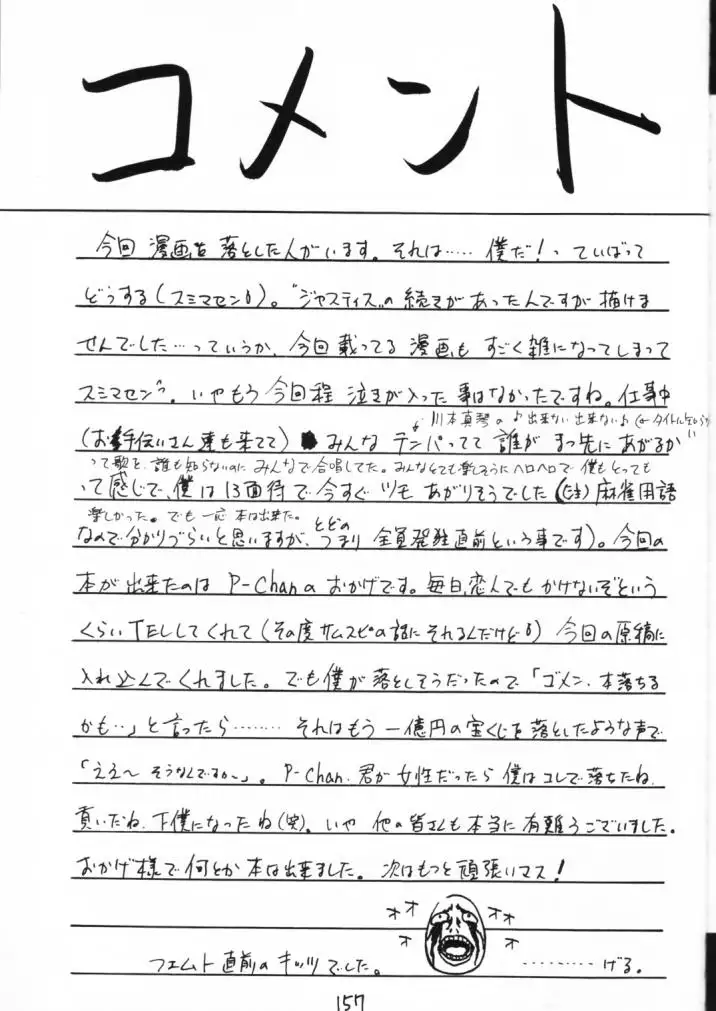 コメント
今回 漫画を 落とした人がいます。それは…… 僕だ！っていばって
どうする(スミマセン)。"ジャスティス"の続きがあったんですが描けま
せんでした…っていうか、今回載ってる漫画もすごく雑になってしまって
スミマセン。いやもう今回程 泣きが入った事はなかったですね。仕事中
川本真琴の♪出来ない出来ない♪
(お手伝いさん達も来てて) みんな テンパってて 誰が まっ先に あがるか
って歌を、誰も知らないのに みんなで合唱してた。みんなとても楽しそうにヘロヘロで 僕もとっても
って感じで、僕は13面待で今すぐツモあがりそうでした(注)麻雀用語
楽しかった。でも一応 本は出来た。
なので分かりづらいと思いますが、つまり 全員発狂直前という事です)。今回の
とどの
本が出来たのは P-Chanの おかげです。毎日、恋人でも かけないぞという
くらいTELしてくれて(その度サムスピの話にそれるんだけど)今回の原稿に
入れ込んでくれました。でも僕が落としそうだったので「ゴメン、本落ちる
かも‥」と言ったら……… それはもう 一億円の宝くじを落としたような声で
「ええ〜 そうなんですか〜」。P-Chan、君が女性だったら 僕はコレで落ちたね、
貢いだね、下僕になったね(笑)。いや 他の皆さんも本当に有難うございました。
おかげ様で何とか本は出来ました。次はもっと頑張いマス！
オオ
オオ
オ
オ
フェムト直前のキッツでした。
………げる。
157